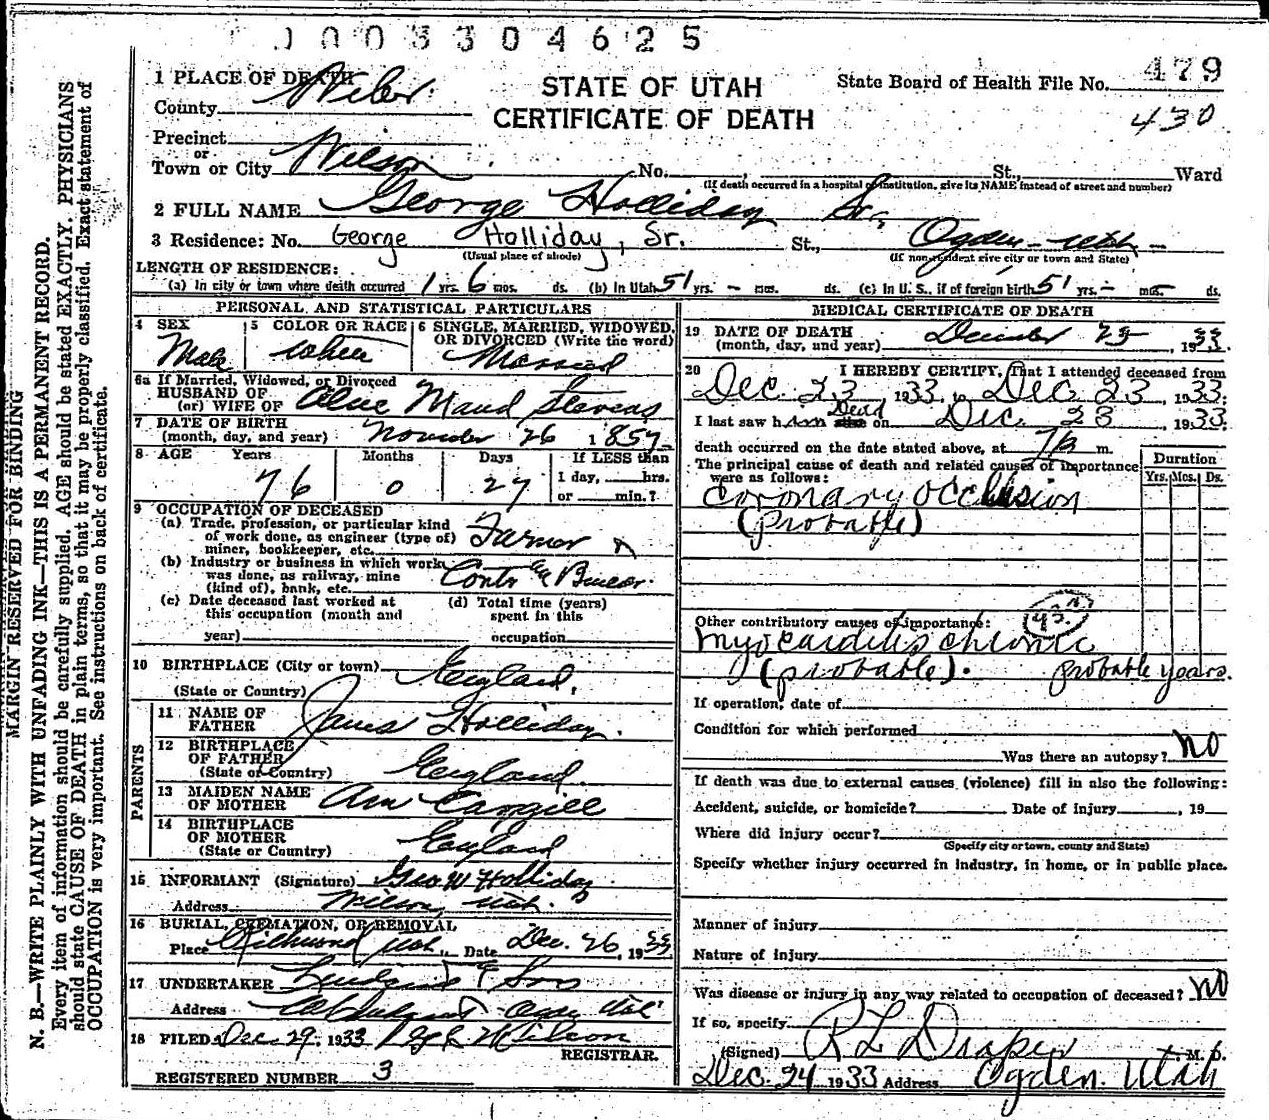 1003304625
1 PLACE OF DEATH
STATE OF UTAH
CERTIFICATE OF DEATH
State Board of Health File No. 479
430
County Weber
Precinct
or
Town or City Wilson No. St., Ward
(If death occurred in a hospital or institution, give its NAME instead of street and number)
2 FULL NAME George Holliday Sr.
3 Residence: No. George Holliday, Sr. St., Ogden - Utah -
(Usual place of abode) (If non-resident give city or town and State)
LENGTH OF RESIDENCE:
(a) In city or town where death occurred 1 yrs. 6 mos. ds. (b) In Utah 51 yrs. - mos. ds. (c) In U. S., if of foreign birth 51 yrs. - mos. ds.
PERSONAL AND STATISTICAL PARTICULARS
4 SEX Male
5 COLOR OR RACE white
6 SINGLE, MARRIED, WIDOWED, OR DIVORCED (Write the word) Married
6a If Married, Widowed, or Divorced
HUSBAND OF
(or) WIFE OF Maud Stevens
7 DATE OF BIRTH
(month, day, and year) November 26 1857
8 AGE Years Months Days If LESS than
76 0 27 1 day, hrs.
or min.?
9 OCCUPATION OF DECEASED
(a) Trade, profession, or particular kind
of work done, as engineer (type of)
miner, bookkeeper, etc. Farmer
(b) Industry or business in which work
was done, as railway, mine
(kind of), bank, etc.
(c) Date deceased last worked at
this occupation (month and
year)
(d) Total time (years)
spent in this
occupation
10 BIRTHPLACE (City or town) England,
(State or Country)
PARENTS
11 NAME OF
FATHER James Holliday.
12 BIRTHPLACE
OF FATHER
(State or Country) England
13 MAIDEN NAME
OF MOTHER Ann Cargill
14 BIRTHPLACE
OF MOTHER
(State or Country) England
15 INFORMANT (Signature) Geo W Holliday
Address Wilson, Utah.
16 BURIAL, CREMATION, OR REMOVAL
Place Richmond Utah Date Dec. 26, 1933
17 UNDERTAKER & Sons
Address Ogden Utah
18 FILED Dec 29, 1933 Wilson
REGISTRAR.
REGISTERED NUMBER 3
MEDICAL CERTIFICATE OF DEATH
19 DATE OF DEATH
(month, day, and year) December 23, 1933.
20 I HEREBY CERTIFY, That I attended deceased from
Dec. 23, 1933, to Dec. 23, 1933.
I last saw him Dead on Dec. 23, 1933
death occurred on the date stated above, at m.
The principal cause of death and related causes of importance
were as follows:
Duration
Yrs. Mos. Ds.
Coronary Occlusion
(Probable)
Other contributory causes of importance:
Myocarditis chronic
(probable). probable years.
If operation, date of
Condition for which performed
Was there an autopsy? NO
If death was due to external causes (violence) fill in also the following:
Accident, suicide, or homicide? Date of injury , 19
Where did injury occur?
(Specify city or town, county and State)
Specify whether injury occurred in industry, in home, or in public place.
Manner of injury
Nature of injury
Was disease or injury in any way related to occupation of deceased? NO
If so, specify
(Signed) R L Draper M. D.
Dec. 24 1933 Address Ogden, Utah
MARGIN RESERVED FOR BINDING
N. B.—WRITE PLAINLY WITH UNFADING INK—THIS IS A PERMANENT RECORD.
Every item of information should be carefully supplied. AGE should be stated EXACTLY. PHYSICIANS
should state CAUSE OF DEATH in plain terms, so that it may be properly classified. Exact statement of
OCCUPATION is very important. See instructions on back of certificate.